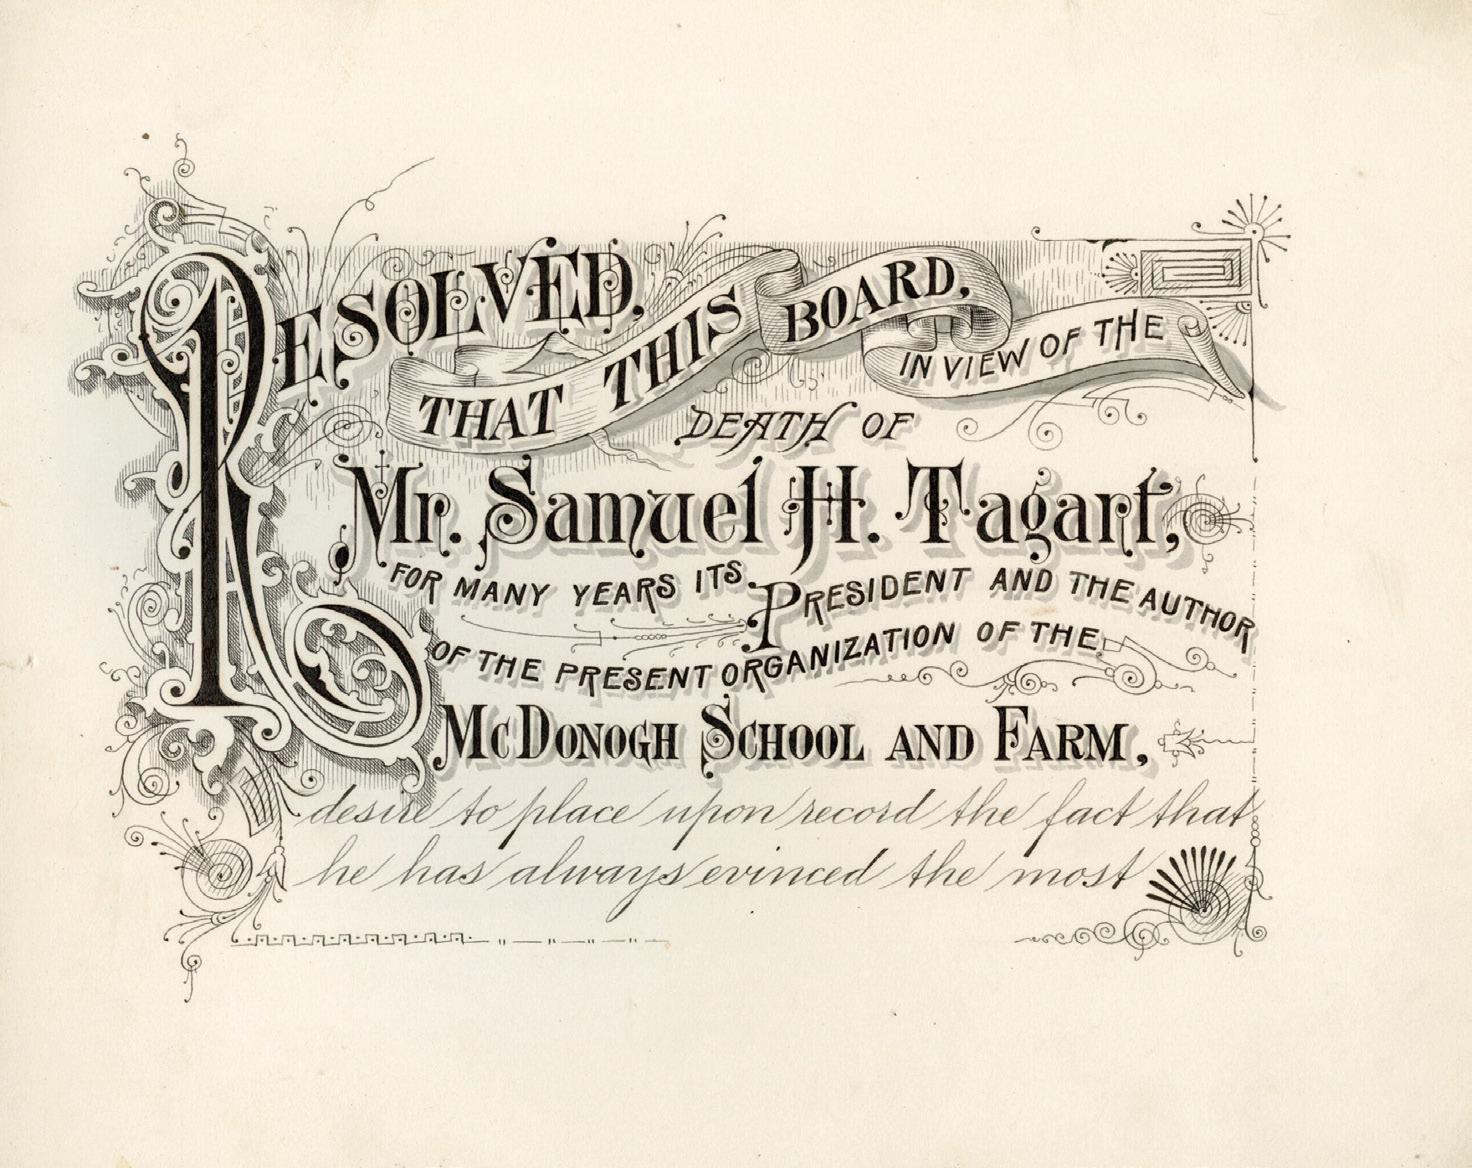 RESOLVED,
THAT THIS BOARD,
IN VIEW OF THE
DEATH OF
Mr. Samuel H. Tagart,
FOR MANY YEARS ITS PRESIDENT AND THE AUTHOR
OF THE PRESENT ORGANIZATION OF THE
MCDONOGH SCHOOL AND FARM,
desire to place upon record the fact that
he has always evinced the most